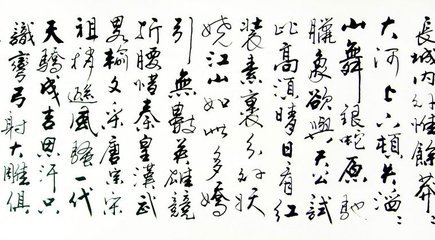 長城内外惟餘莽〻
大河上下頓失滔〻
山舞銀蛇原馳
臘象欲與天公試
比高須晴日看紅
裝素裹分外妖
嬈江山如此多嬌
引無數英雄競
折腰惜秦皇漢武
畧輸文采唐宗宋
祖稍遜風騷一代
天驕成吉思汗只
識彎弓射大雕俱